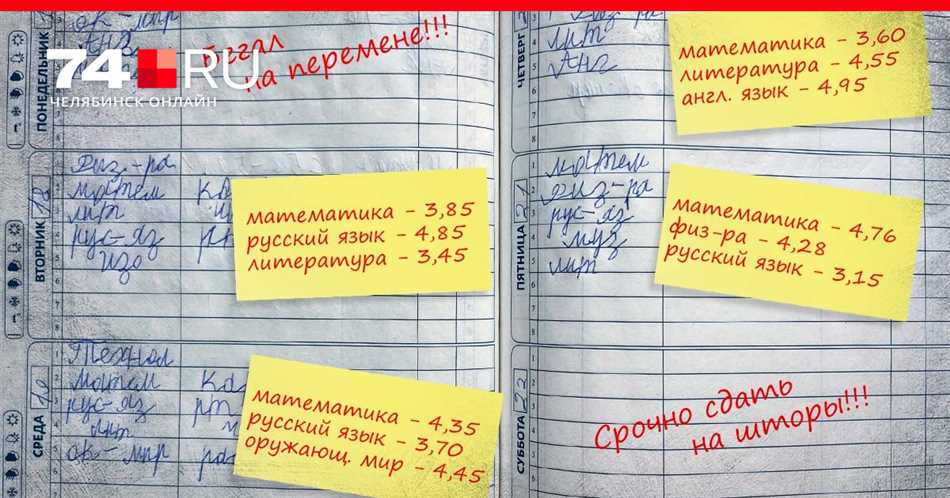 ПОНЕДЕЛЬНИК
ок-мир
бегал
на перемене!!!
74.RU
ЧЕЛЯБИНСК ОНЛАЙН
7
8
ВТОРНИК 18
физ-ра
матем
лит
рус-яз
изо
математика - 3,85
русский язык - 4,85
литература - 3,45
6
7
8
СРЕДА 19
Технол
матем
рус-яз
лит
ок-мир
математика - 4,35
русский язык - 3,70
оружающ. мир - 4,45
ЧЕТВЕРГ
физ-ра
лит
математика - 3,60
литература - 4,55
англ. язык - 4,95
ПЯТНИЦА 21
матем
физ-ра
рус-яз
муз
лит
математика - 4,76
физ-ра - 4,28
русский язык - 3,15
СУББОТА 22
Срочно сдать
на шторы!!!